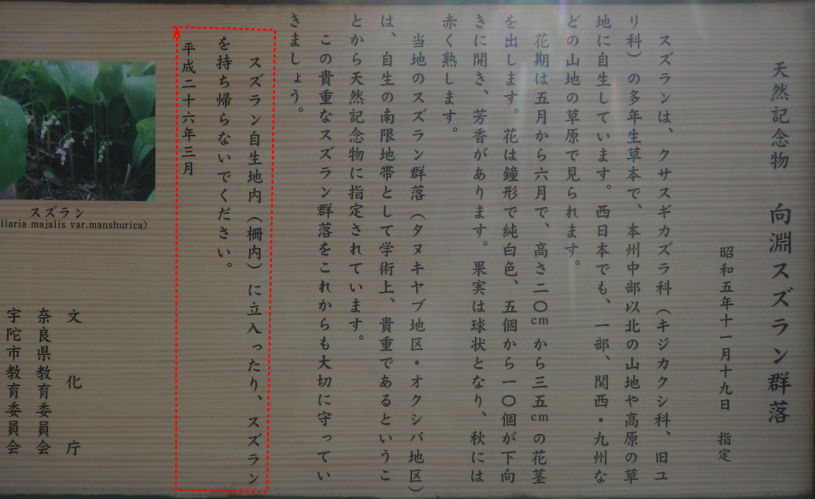 天然記念物 向淵スズラン群落
昭和五年十一月十九日 指定
スズランは、クサスギカズラ科（キジカクシ科、旧ユ
リ科）の多年生草本で、本州中部以北の山地や高原の草
地に自生しています。西日本でも、一部、関西・九州な
どの山地の草原で見られます。
花期は五月から六月で、高さ二〇cmから三五cmの花茎
を出します。花は鐘形で純白色、五個から一〇個が下向
きに開き、芳香があります。果実は球状となり、秋には
赤く熟します。
当地のスズラン群落（タヌキヤブ地区・オクシバ地区）
は、自生の南限地帯として学術上、貴重であるというこ
とから天然記念物に指定されています。
この貴重なスズラン群落をこれからも大切に守ってい
きましょう。
スズラン自生地内（柵内）に立入ったり、スズラン
を持ち帰らないでください。
平成二十六年三月
スズラン
llaria majalis var.manshurica)
文化庁
奈良県教育委員会
宇陀市教育委員会